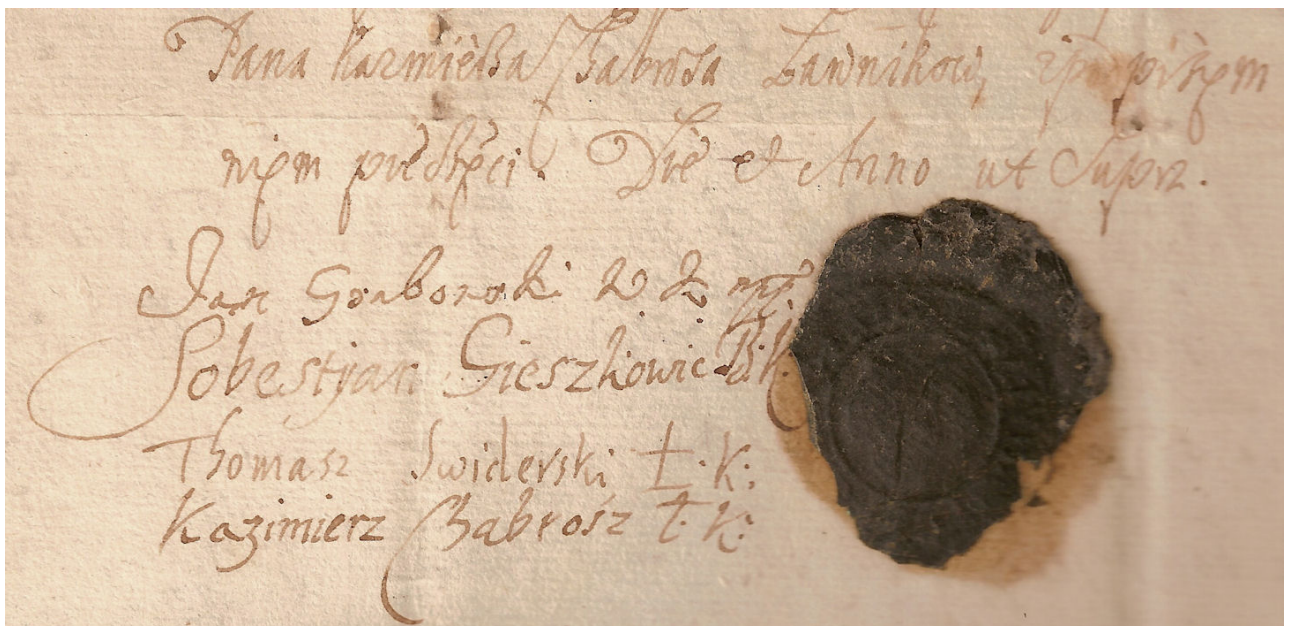 Pana Kazmierza Babrosza Ławnikow, z podpisem
nięm pieczęci. Die et Anno ut Supra.
Jan Graborski W W mp.
Sobestyan Gieszkowic B. K.
Thomasz Swiderski Ł. K:
Kazimierz Babrosz Ł. K: